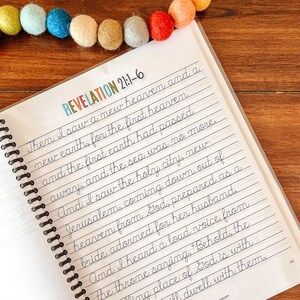 REVELATION 21:1-6
Then I saw a new heaven and a
new earth for the first heaven
and the first earth had passed
away, and the sea was no more.
And I saw the holy city, new
Jerusalem, coming down out of
heaven from God, prepared as a
bride adorned for her husband.
And I heard a loud voice from
the throne saying, "Behold, the
place of God is with
will dwell with them,